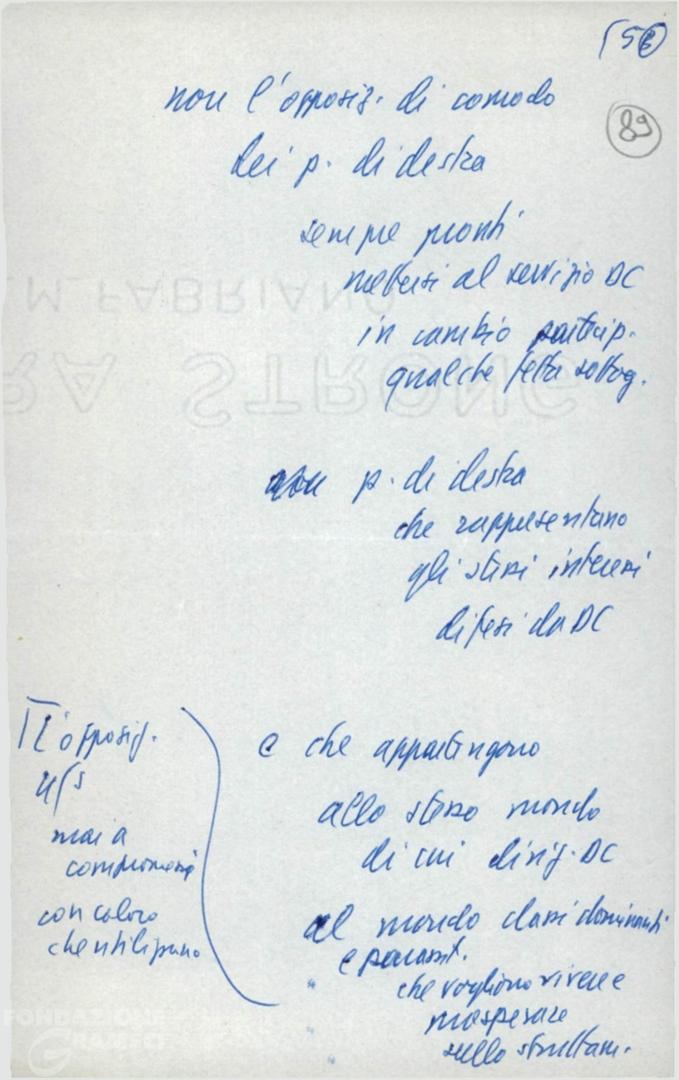 89
non l'opposiz. di comodo
dei p. di destra
sempre pronti
mettersi al servizio DC
in cambio partecip.
qualche fetta sottog.
M. FABRIANO
RA STRONG
p. di destra
che rappresentano
gli stessi interessi
difesi da DC
e che appartengono
allo stesso mondo
di cui dirig. DC
al mondo classi dominanti
e parassit.
che vogliono vivere e
prosperare
sullo sfruttam.
L'opposiz.
mai a
compromessi
con coloro
che
FONDAZIONE
GRAMSCI